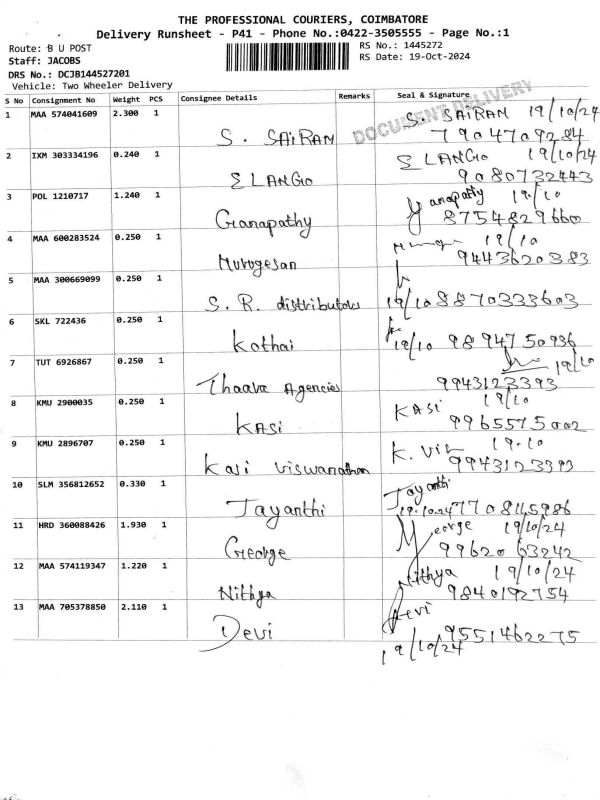 THE PROFESSIONAL COURIERS, COIMBATORE
Delivery Runsheet - P41 - Phone No.:0422-3505555 - Page No.:1
Route: B U POST RS No.: 1445272
Staff: JACOBS RS Date: 19-Oct-2024
DRS No.: DCJB144527201
Vehicle: Two Wheeler Delivery
DOCUMENT DELIVERY
S No Consignment No Weight PCS Consignee Details Remarks Seal & Signature
1 MAA 574041609 2.300 1 S. SAIRAM 19/10/24
S. SAIRAM 7904709284
2 IXM 303334196 0.240 1 ELANGO 19/10/24
ELANGO 9080732443
3 POL 1210717 1.240 1 Ganapathy 19/10
Ganapathy 8754829660
4 MAA 600283524 0.250 1 19/10
Murugesan 9443620383
5 MAA 300669099 0.250 1
S. R. distributors 19/10 8870333603
6 SKL 722436 0.250 1
Kothai 19/10 9894750936
7 TUT 6926867 0.250 1 19/10
Thaara Agencies 9943123393
8 KMU 2900035 0.250 1 KASI 19/10
KASI 9965575002
9 KMU 2896707 0.250 1 K. Vis 19.10
Kasi viswanathan 9943123393
10 SLM 356812652 0.330 1 Jayanthi
Jayanthi 19.10.24 7708115986
11 HRD 360088426 1.930 1 George 19/10/24
George 9962063242
12 MAA 574119347 1.220 1 Nithya 19/10/24
Nithya 9840192754
13 MAA 705378850 2.110 1 Devi
Devi 9551462275
19/10/24